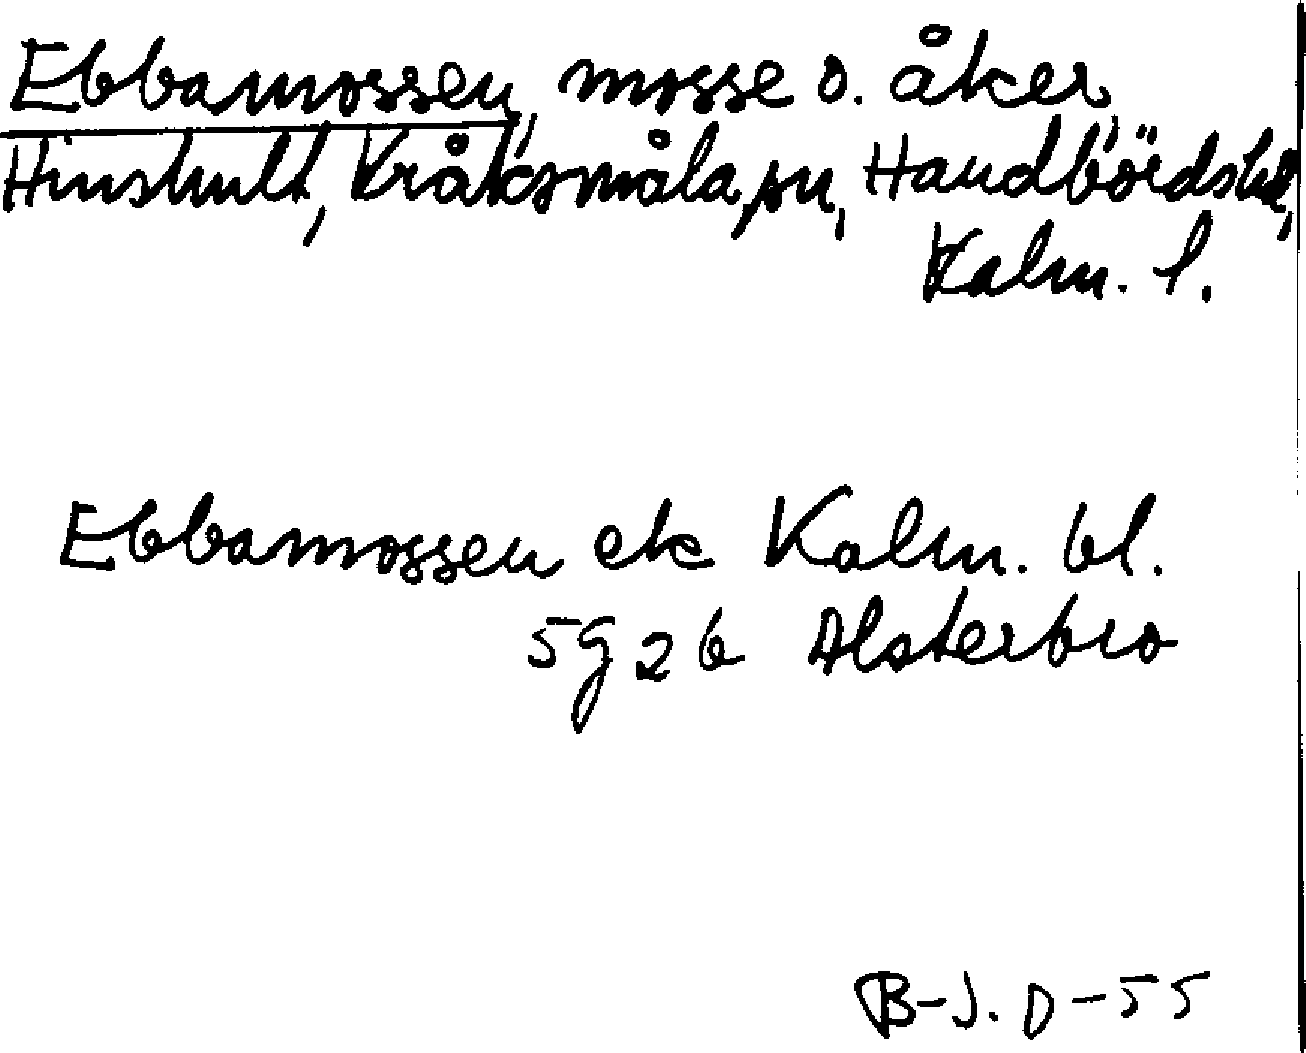 Ebbamossen, mosse o. åker,
Hinshult, Kråksmåla sn, Handbörds hd,
Kalm. l.
Ebbamossen ek Kalm. bl.
5g 2b Alsterbro
B-J. D-55